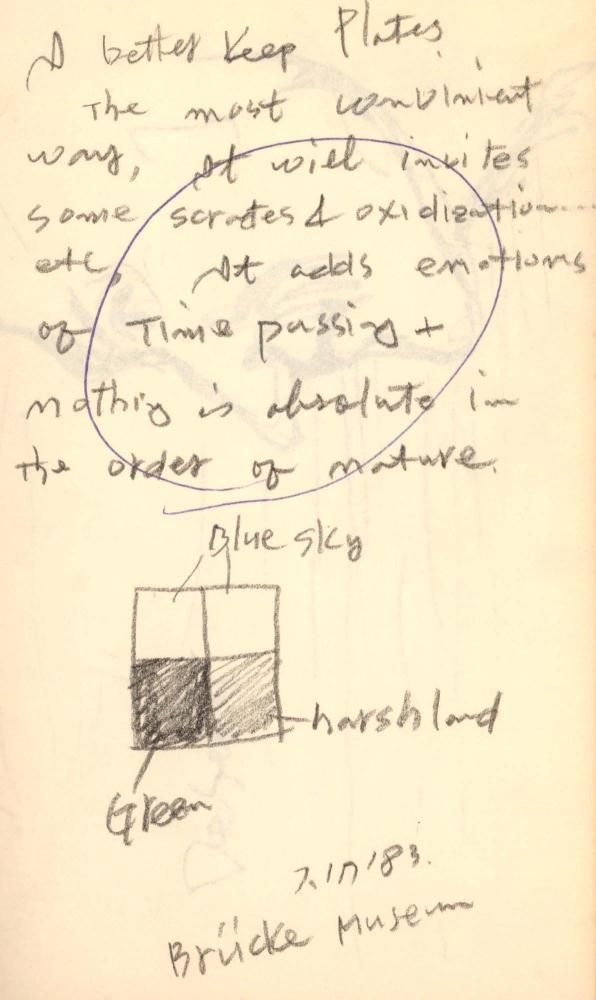 I better keep Plates
The most convinient
way, It will invites
some scrates & oxidization....
etc, It adds emotions
of Time passing +
nothing is absolute in
the order of nature.
Blue sky
harsh land
Green
7.17 '83.
Brücke Museum